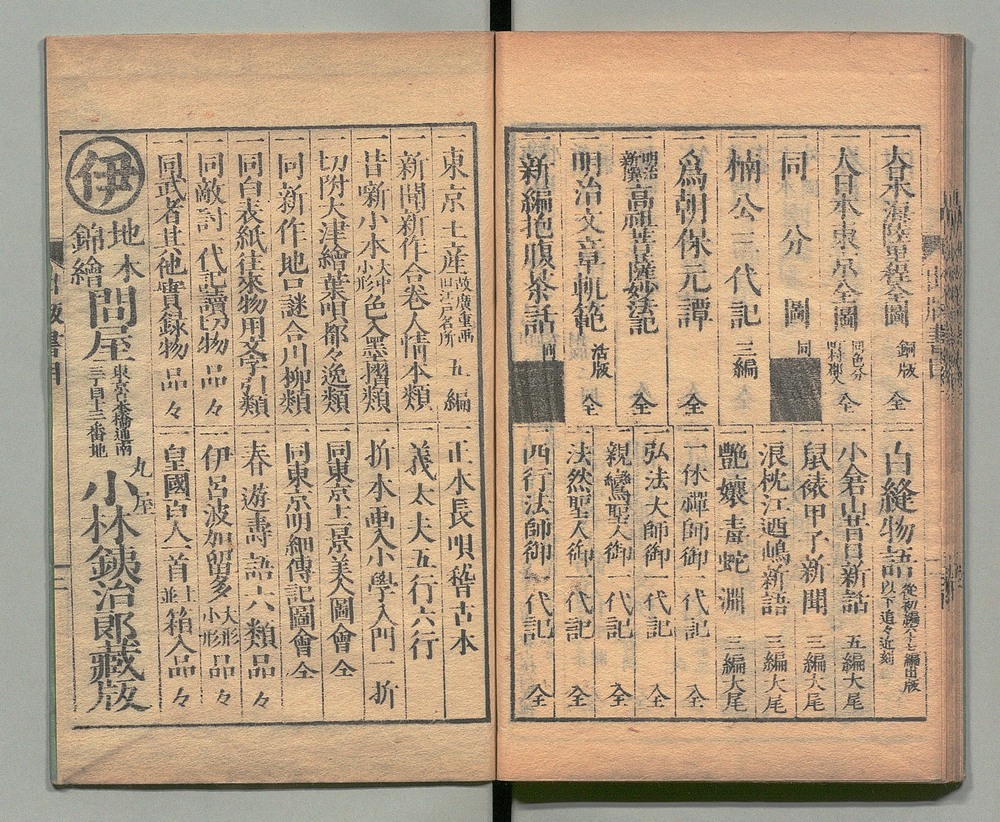 大日本海陸里程全圖 銅版 全
大日本東京全圖 同色分 町村郡入 全
同 分 圖 同
楠公三代記 三編
爲朝保元譚 全
明治新撰 高祖菩薩妙法記 全
明治文章軌範 活版 全
新編抱腹茶話 同
白縫物語 從初編六十七編出版 以下追々近刻
小倉山昔日新話 五編大尾
鼠俵甲子新聞 三編大尾
浪枕江廼嶋新語 三編大尾
艷孃毒蛇淵 三編大尾
一休禪師御一代記 全
弘法大師御一代記 全
親鸞聖人御一代記 全
法然聖人御一代記 全
西行法師御一代記 全
一東京土産 故廣重画 旧江戸名所 五編
一新聞新作合卷人情本類
一昔噺小本 大中小形 色入墨摺類
一切附大津繪葉唄都々逸類
一同新作地口謎合川柳類
一同白表紙往來物用文字引類
一同敵討一代記讀切物 品々
一同武者其他實録物 品々
一正本長唄稽古本
一義太夫五行六行
一折本画入小學入門一折
一同東京十二景美人圖會 全
一同東京明細傳記圖會 全
一春遊壽語六類品々
一伊呂波加留多 大形 小形 品々
一皇國百人一首 上並 箱入品々
伊
地本
錦繪
問屋 東京京橋通南三丁目十三番地
丸屋 小林鉄治郎藏版